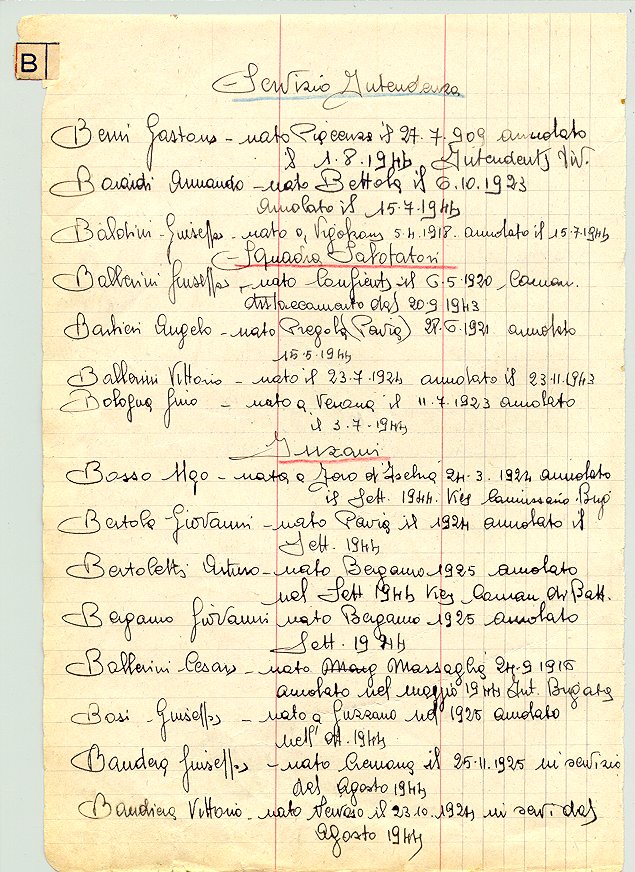 B
Servizio Intendenza
Berni Gastone - nato Piacenza il 27.7.909 arruolato
il 1.8.1944 Intendente Div.
Armando - nato Bettola il 6.10.1923
arruolato il 15.7.1944
Baldini Giuseppe - nato a 5.4.1918 arruolato il 15.7.1944
Squadra Sabotatori
Ballerini Giuseppe - nato il 6.5.1920 Coman.
distaccamento dal 20.9.1943
Barbieri Angelo - nato Pregola (Pavia) 28.6.1921 arruolato
15.5.1944
Ballerini Vittorio - nato il 23.7.1924 arruolato il 23.11.1943
Bologna Gino - nato a Verona il 11.7.1923 arruolato
il 3.7.1944
Bosso Ugo - nato a d'Ischia 24.3.1924 arruolato
il Sett. 1944. Vice Commissario Brig
Bertola Giovanni - nato Pavia il 1924 arruolato il
Sett. 1944
Bertoletti Arturo - nato Bergamo 1925 arruolato
nel Sett 1944 Vice Coman. di Batt.
Bergamo Giovanni nato Bergamo 1925 arruolato
Sett. 1944
Ballerini Cesare - nato Massaglia 24.9.1918
arruolato nel maggio 1944 Int. Brigata
Bosi Giuseppe - nato a nel 1925 arruolato
nell' ott. 1944
Bandera Giuseppe - nato Cremona il 25.11.1925 in servizio
dal Agosto 1944
Bandiera Vittorio - nato il 23.10.1924 in servi dal
Agosto 1944